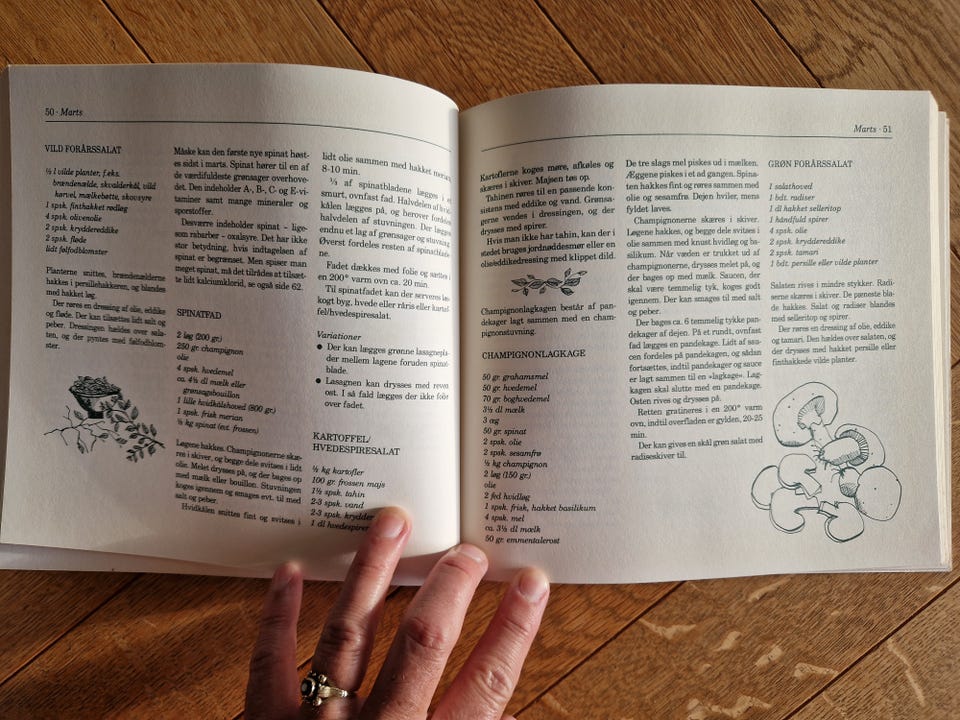 50 · Marts
VILD FORÅRSSALAT
½ l vilde planter, f.eks.
brændenælde, skvalderkål, vild
kørvel, mælkebøtte, skovsyre
1 spsk. finthakket rødløg
4 spsk. olivenolie
2 spsk. kryddereddike
2 spsk. fløde
lidt følfodblomster
Planterne snittes, brændenælderne
hakkes i persillehakkeren, og blandes
med hakket løg.
Der røres en dressing af olie, eddike
og fløde. Der kan tilsættes lidt salt og
peber. Dressingen hældes over sala-
ten, og der pyntes med følfodblom-
ster.
Måske kan den første nye spinat høst-
es sidst i marts. Spinat hører til en af
de værdifuldeste grønsager overhove-
det. Den indeholder A-, B-, C- og E-vi-
taminer samt mange mineraler og
sporstoffer.
Desværre indeholder spinat – lige-
som rabarber – oxalsyre. Det har ikke
stor betydning, hvis indtagelsen af
spinat er begrænset. Men spiser man
meget spinat, må det tilrådes at tilsæt-
te lidt kalciumklorid, se også side 62.
SPINATFAD
2 løg (200 gr.)
250 gr. champignon
olie
4 spsk. hvedemel
ca. 4½ dl mælk eller
grønsagsbouillon
1 lille hvidkålshoved (800 gr.)
1 spsk. frisk merian
½ kg spinat (evt. frossen)
Løgene hakkes. Champignonerne skæ-
res i skiver, og begge dele svitses i lidt
olie. Melet drysses på, og der bages op
med mælk eller bouillon. Stuvningen
koges igennem og smages evt. til med
salt og peber.
Hvidkålen snittes fint og svitses i
lidt olie sammen med hakket merian
8-10 min.
⅓ af spinatbladene lægges i et
smurt, ovnfast fad. Halvdelen af hvid-
kålen lægges på, og herover fordeles
halvdelen af stuvningen. Der lægges
endnu et lag af grønsager og stuvning.
Øverst fordeles resten af spinatblade-
ne.
Fadet dækkes med folie og sættes i
en 200° varm ovn ca. 20 min.
Til spinatfadet kan der serveres løs-
kogt byg, hvede eller råris eller kartof-
fel/hvedespiresalat.
Variationer
● Der kan lægges grønne lasagnepla-
der mellem lagene foruden spinat-
blade.
● Lasagnen kan drysses med reven
ost. I så fald lægges der ikke folie
over fadet.
KARTOFFEL/
HVEDESPIRESALAT
½ kg kartofler
100 gr. frossen majs
1½ spsk. tahin
2-3 spsk. vand
2-3 spsk. krydder
1 dl hvedespirer
Marts · 51
Kartoflerne koges møre, afkøles og
skæres i skiver. Majsen tøs op.
Tahinen røres til en passende kon-
sistens med eddike og vand. Grønsa-
gerne vendes i dressingen, og der
drysses med spirer.
Hvis man ikke har tahin, kan der i
stedet bruges jordnøddesmør eller en
olie/eddikedressing med klippet dild.
Champignonlagkagen består af pan-
dekager lagt sammen med en cham-
pignonstuvning.
CHAMPIGNONLAGKAGE
50 gr. grahamsmel
50 gr. hvedemel
70 gr. boghvedemel
3½ dl mælk
3 æg
50 gr. spinat
2 spsk. olie
2 spsk. sesamfrø
½ kg champignon
2 løg (150 gr.)
olie
2 fed hvidløg
1 spsk. frisk, hakket basilikum
4 spsk. mel
ca. 3½ dl mælk
50 gr. emmentalerost
De tre slags mel piskes ud i mælken.
Æggene piskes i et ad gangen. Spina-
ten hakkes fint og røres sammen med
olie og sesamfrø. Dejen hviler, mens
fyldet laves.
Champignonerne skæres i skiver.
Løgene hakkes, og begge dele svitses i
olie sammen med knust hvidløg og ba-
silikum. Når væden er trukket ud af
champignonerne, drysses melet på, og
der bages op med mælk. Saucen, der
skal være temmelig tyk, koges godt
igennem. Der kan smages til med salt
og peber.
Der bages ca. 6 temmelig tykke pan-
dekager af dejen. På et rundt, ovnfast
fad lægges en pandekage. Lidt af sau-
cen fordeles på pandekagen, og sådan
fortsættes, indtil pandekager og sauce
er lagt sammen til en »lagkage«. Lag-
kagen skal slutte med en pandekage.
Osten rives og drysses på.
Retten gratineres i en 200° varm
ovn, indtil overfladen er gylden, 20-25
min.
Der kan gives en skål grøn salat med
radiseskiver til.
GRØN FORÅRSSALAT
1 salathoved
1 bdt. radiser
1 dl hakket selleritop
1 håndfuld spirer
4 spsk. olie
2 spsk. kryddereddike
2 spsk. tamari
1 bdt. persille eller vilde planter
Salaten rives i mindre stykker. Radi-
serne skæres i skiver. De pæneste bla-
de hakkes. Salat og radiser blandes
med selleritop og spirer.
Der røres en dressing af olie, eddike
og tamari. Den hældes over salaten, og
der drysses med hakket persille eller
finthakkede vilde planter.